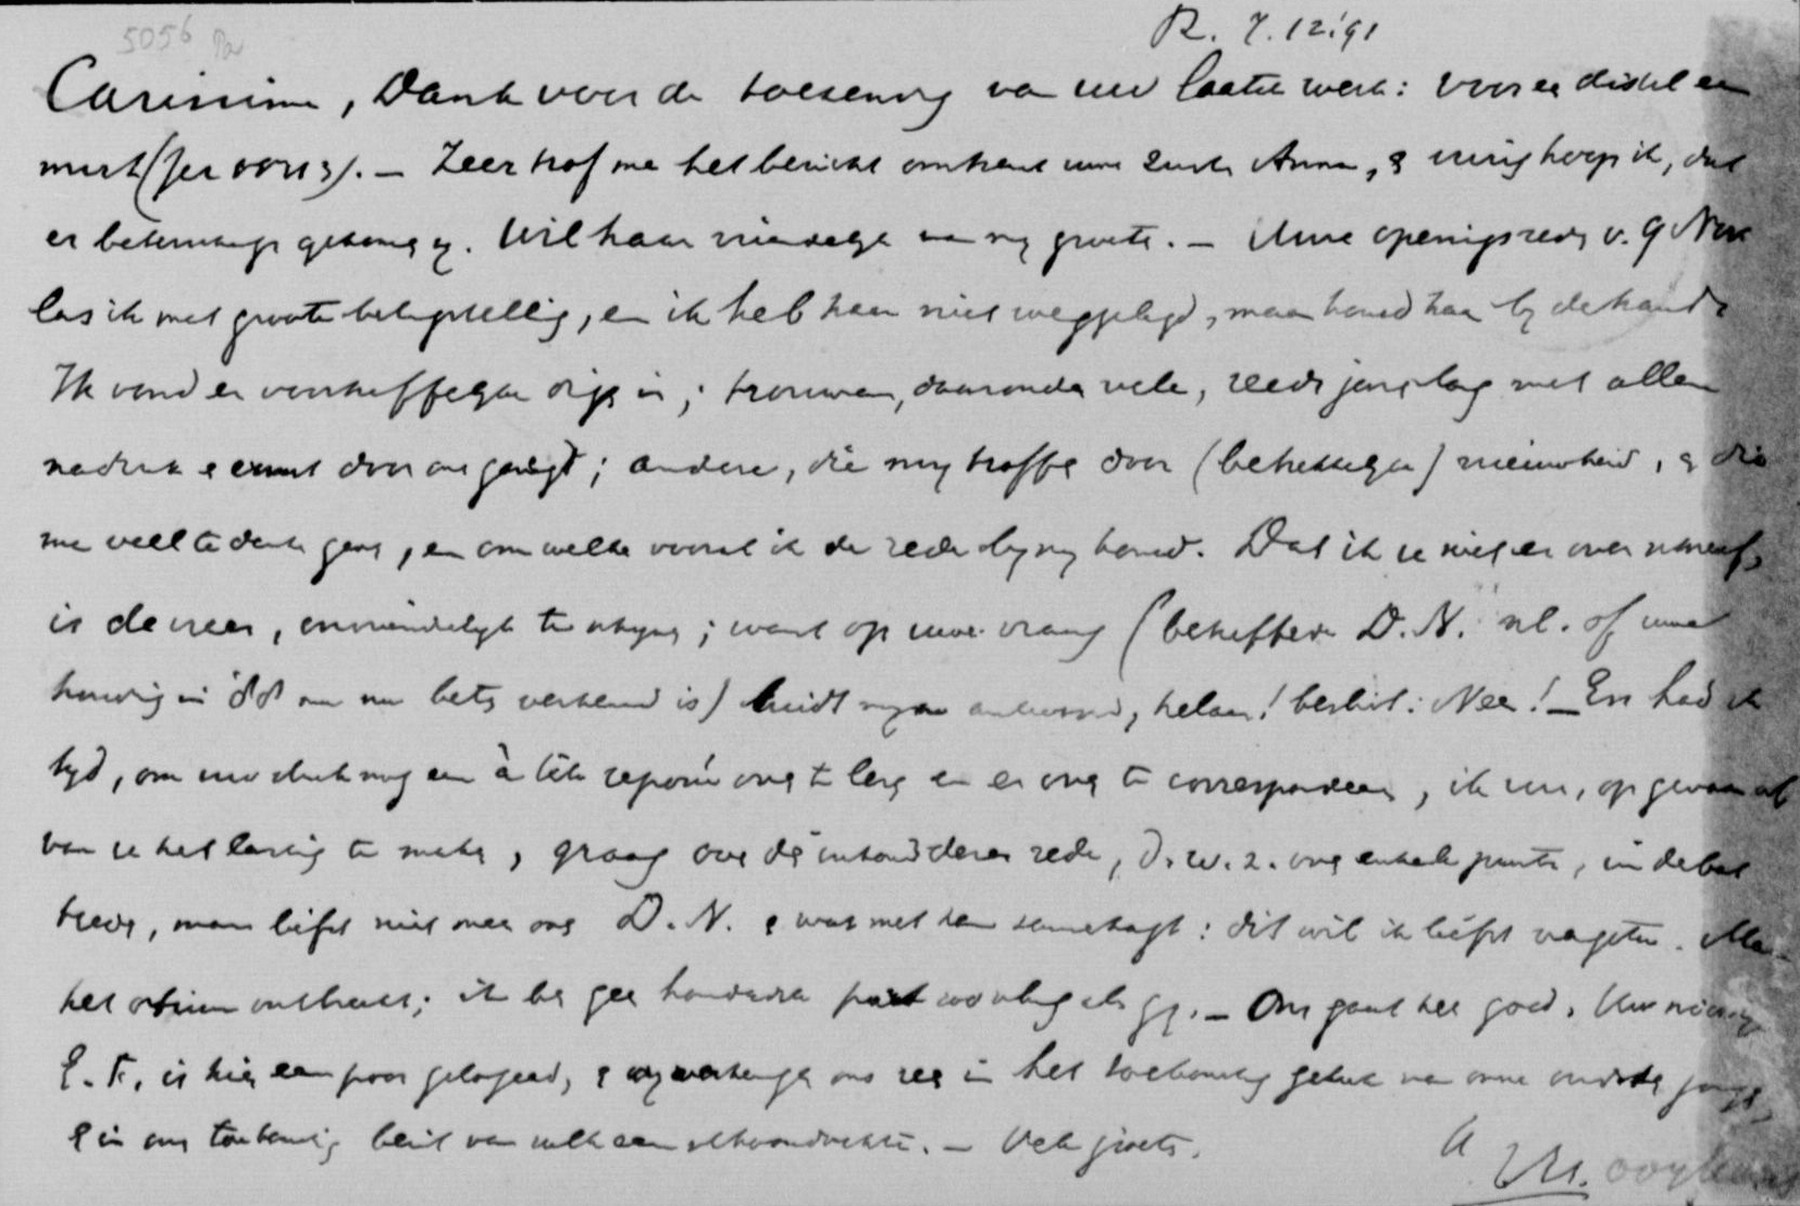 5056
R. 7.12.'91
Carissime, Dank voor de toezending van uw laatste werk: voor een distel een
mirt (Jes 55:13). — Zeer trof me het bericht omtrent uwe zuster Anna, & innig hoop ik, dat
er beterschap gekomen zij. Wil haar vriendelijk van mij groeten. — Uwe openingsrede v. 9 Nov
las ik met groote belangstelling, en ik heb haar niet weggelegd, maar houd haar bij de hand.
Ik vond er voortreffelijke dingen in; trouwens, daaronder vele, reeds jarenlang met allen
nadruk & ernst door ons gezegd; andere, die mij troffen door (betrekkelijke) nieuwheid, & die
me veel te denken gaven, en om welke vooral ik de rede bij mij houd. Dat ik u niet er over schreef,
is de vrees, onvriendelijk te schijnen; want op uwe vraag (betreffende D. N. nl. of uwe
houding in dat nu beter verklaard is) luidt mijn antwoord, helaas! beslist: Nee! — En had ik
tijd, om uw stuk nog eens à tête reposée over te lezen en er over te correspondeeren, ik zou, op gevaar af
van u het lastig te maken, graag over den inhoud dezer rede, d.w.z. over enkele punten, in debat
treden, maar liefst niet meer over D. N. & wat met hem samenhangt: dit wil ik liefst vergeten. Maar
het otium ontbreekt; ik ben geen honderdste part zoo vlug als gij. — Ons gaat het goed. Uw
E. K. is hier een paar gelogeerd, & wij verheugen ons zeer in het geluk van onze oudste jongen,
& in ons bezit van zulk een schoondochter. — Vele groeten.
tt